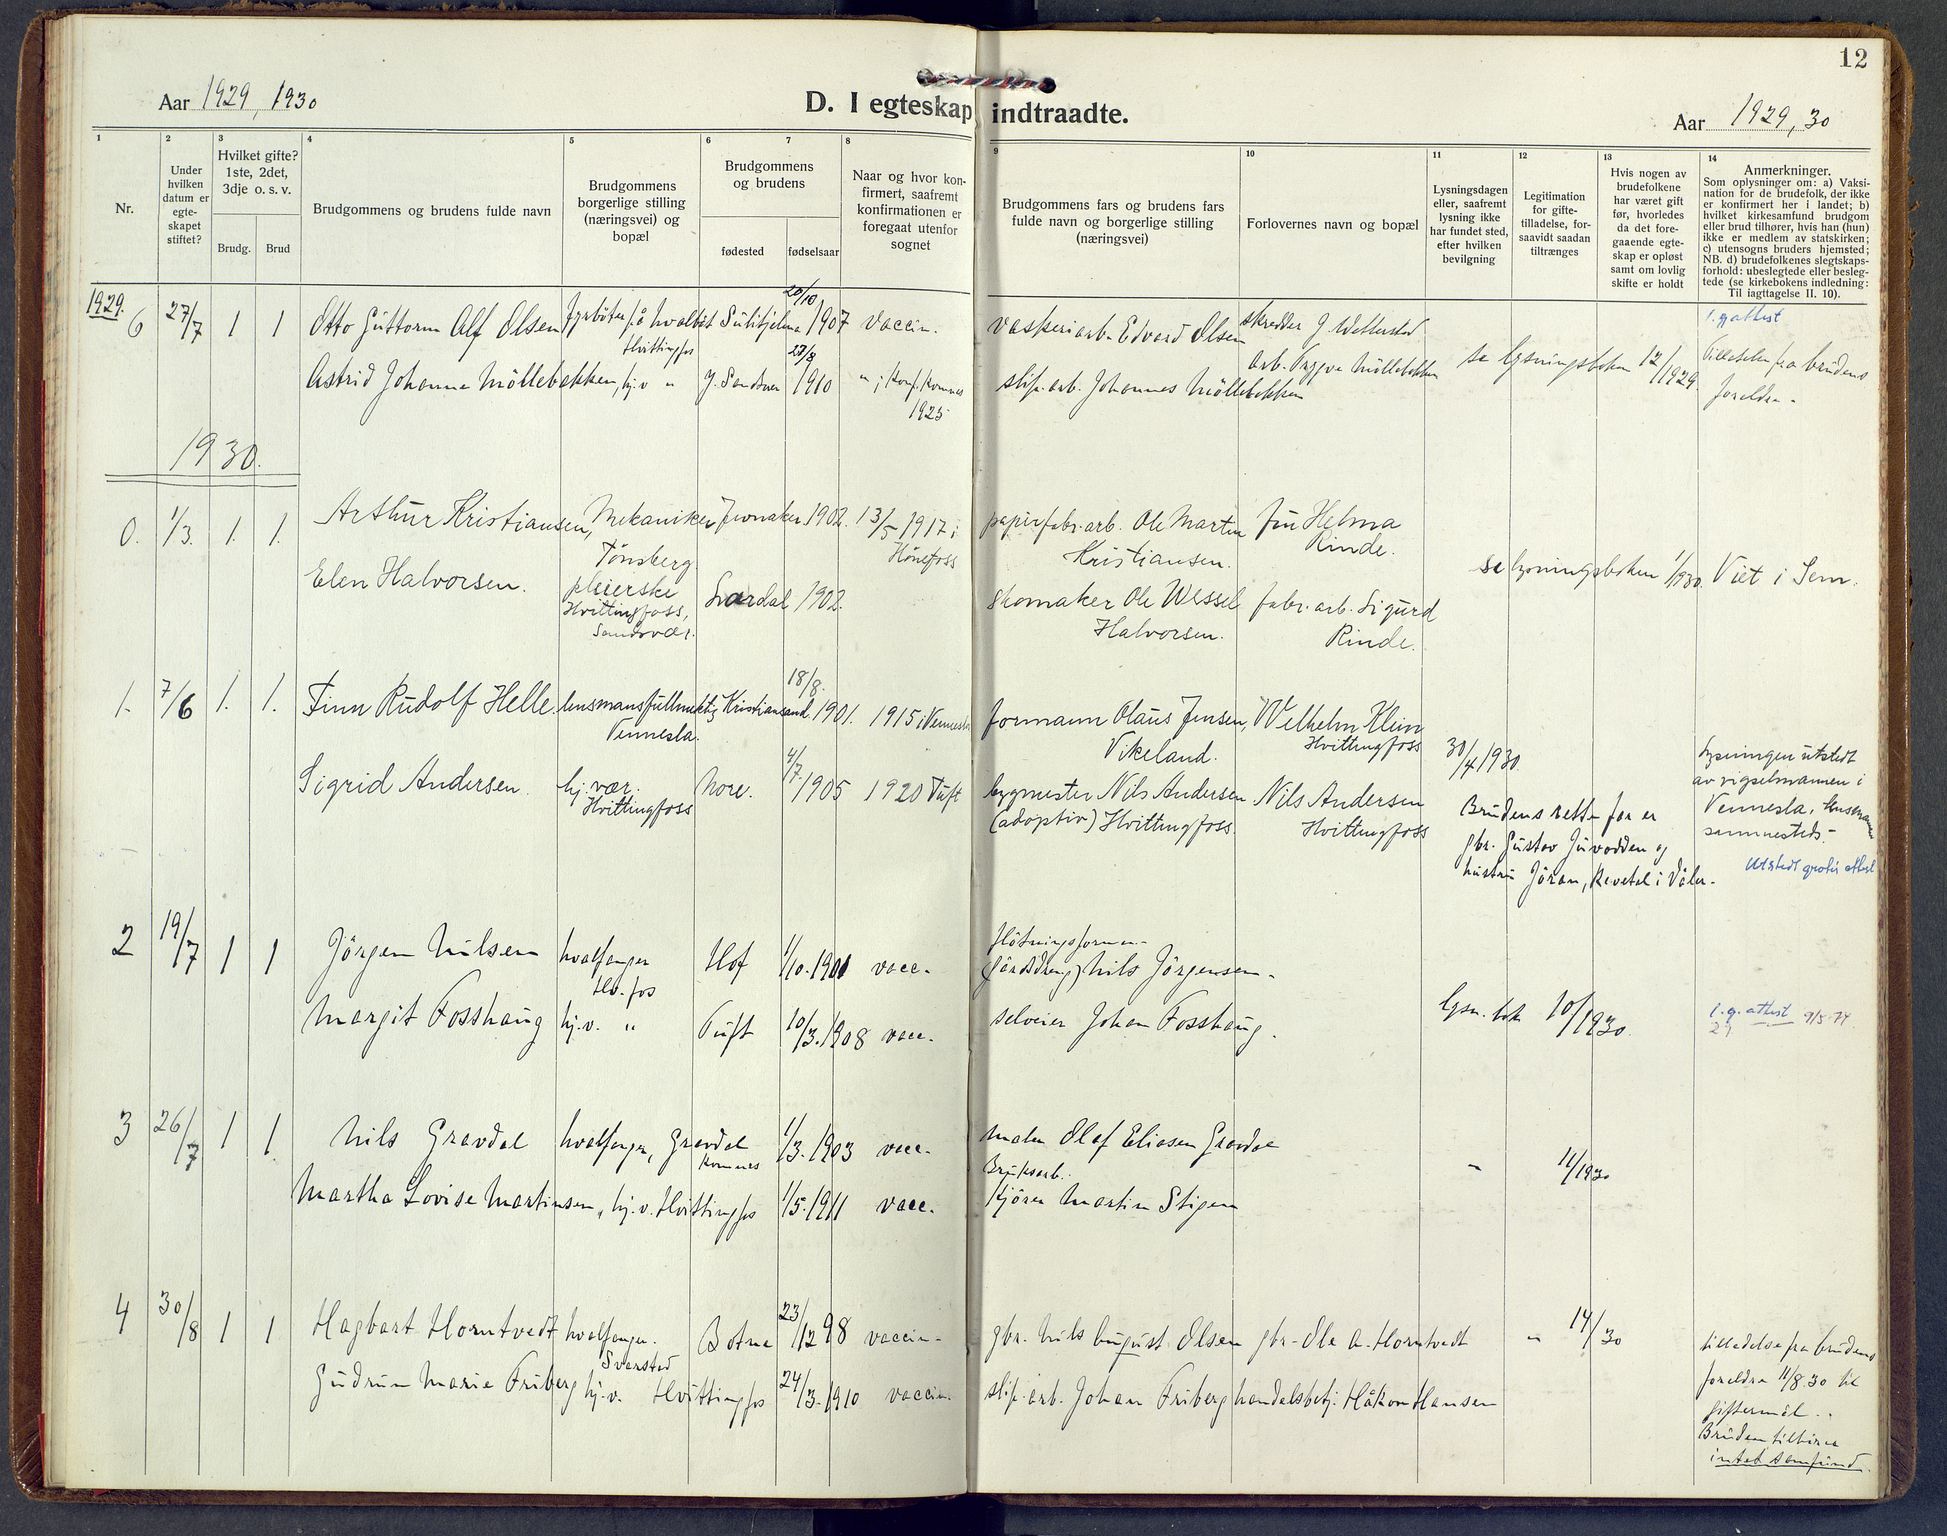 12
Aar 1929, 1930
D. I egteskap indtraadte.
Aar 1929, 30
1
Nr.
2
Under hvilken datum er egte-skapet stiftet?
3
Hvilket gifte? 1ste, 2det, 3dje o. s. v.
Brudg. Brud
4
Brudgommens og brudens fulde navn
5
Brudgommens borgerlige stilling (næringsvei) og bopæl
6 7
Brudgommens og brudens
fødested fødselsaar
8
Naar og hvor kon-firmert, saafremt konfirmationen er foregaat utenfor sognet
9
Brudgommens fars og brudens fars fulde navn og borgerlige stilling (næringsvei)
10
Forlovernes navn og bopæl
11
Lysningsdagen eller, saafremt lysning ikke har fundet sted, efter hvilken bevilgning
12
Legitimation for gifte-tilladelse, for-saavidt saadan tiltrænges
13
Hvis nogen av brudefolkene har været gift før, hvorledes da det fore-gaaende egte-skap er opløst samt om lovlig skifte er holdt
14
Anmerkninger.
Som oplysninger om: a) Vaksi-nation for de brudefolk, der ikke er konfirmert her i landet; b) hvilket kirkesamfund brudgom eller brud tilhører, hvis han (hun) ikke er medlem av statskirken; c) utensogns bruders hjemsted; NB. d) brudefolkenes slegtskaps-forhold: ubeslegtede eller besleg-tede (se kirkebokens indledning: Til iagttagelse II. 10).
1929.
6 27/7 1 1 Otto Guttorm Alf Olsen Fyrbøter på hvalbåt Hvittingfos Sulitjelma 20/10 1907 vaccin. vaskeriarb. Edvard Olsen skredder J. Wetterstad
Astrid Johanne Möllebakken, hj.v. " Y. Sandsver 23/8 1910 "; konf. Komnes 1925 slip.arb. Johannes Möllebakken arb. Trygve Möllebakken se lysningsboken 12/1929
l. g attest
Tilladelse fra brudens foreldre -
1930.
0. 1/3. 1. 1. Arthur Kristiansen, Mekaniker Tønsberg Jevnaker 1902. 13/5 1917 i Hönefoss papirfabr.arb. Ole Martin Kristiansen. fru Helma Rinde.
Elen Halvorsen. pleierske Hvittingfoss, Sandsvær. Lardal 1902. Skomaker Ole Wessel Halvorsen. fabr. arb. Sigurd Rinde. se lysningsboken 1/1930. Viet i Sem.
1. 7/6 1. 1. Finn Rudolf Helle lensmansfullmektig Vennesla. Kristiansand 18/8. 1901. 1915 i Vennesla formann Olaus Jensen, Vikeland. Wilhelm Klein Hvittingfoss
Sigrid Andersen. hj. vær. Hvittingfoss Nore. 4/7. 1905 1920 Tuft bygmester Nils Andersen (adoptiv) Hvittingfoss. Nils Andersen Hvittingfoss 30/4 1930.
Brudens rette far er gbr. Gustav Juvodden og hustru Jöran, Revetal i Våler.
Lysningen utstedt av vigselmannen i Vennesla, lensmannen sammesteds. -
Utstedt gratis attest
2 19/7 1 1 Jörgen Nilsen hvalfanger Hv.fos Hof 1/10. 1901 vacc. flötningsforman Nils Jörgensen -
Margit Fosshaug hj. v. " Tuft 10/3. 1908 vacc. selveier Johan Fosshaug. lysn. bok 10/1930. l. g. attest 9/5-74.
3 26/7 1 1 Nils Gravdal hvalfanger, Gravdal Komnes 1/3. 1903 vacc. maler Olaf Eliasen Gravdal
Martha Lovise Martinsen, hj. v. Hvittingfos 1/5. 1911 vacc. Bruksarb. kjörer Martin Stigen " 11/1930
4 30/8 1 1 Hagbart Horntvedt hvalfanger. Svarstad Botne 23/12 98 vaccin. gbr. Nils August Olsen gbr. Ole A. Horntvedt " 14/30
Gudrun Marie Friberg hj. v. Hvittingfos 24/3. 1910 vaccin. slip. arb. Johan Friberg handelsbetj. Håkon Hansen
tilladelse fra brudens foreldre 11/8. 30 til giftermål. -
Bruden tilhörer intet samfund.